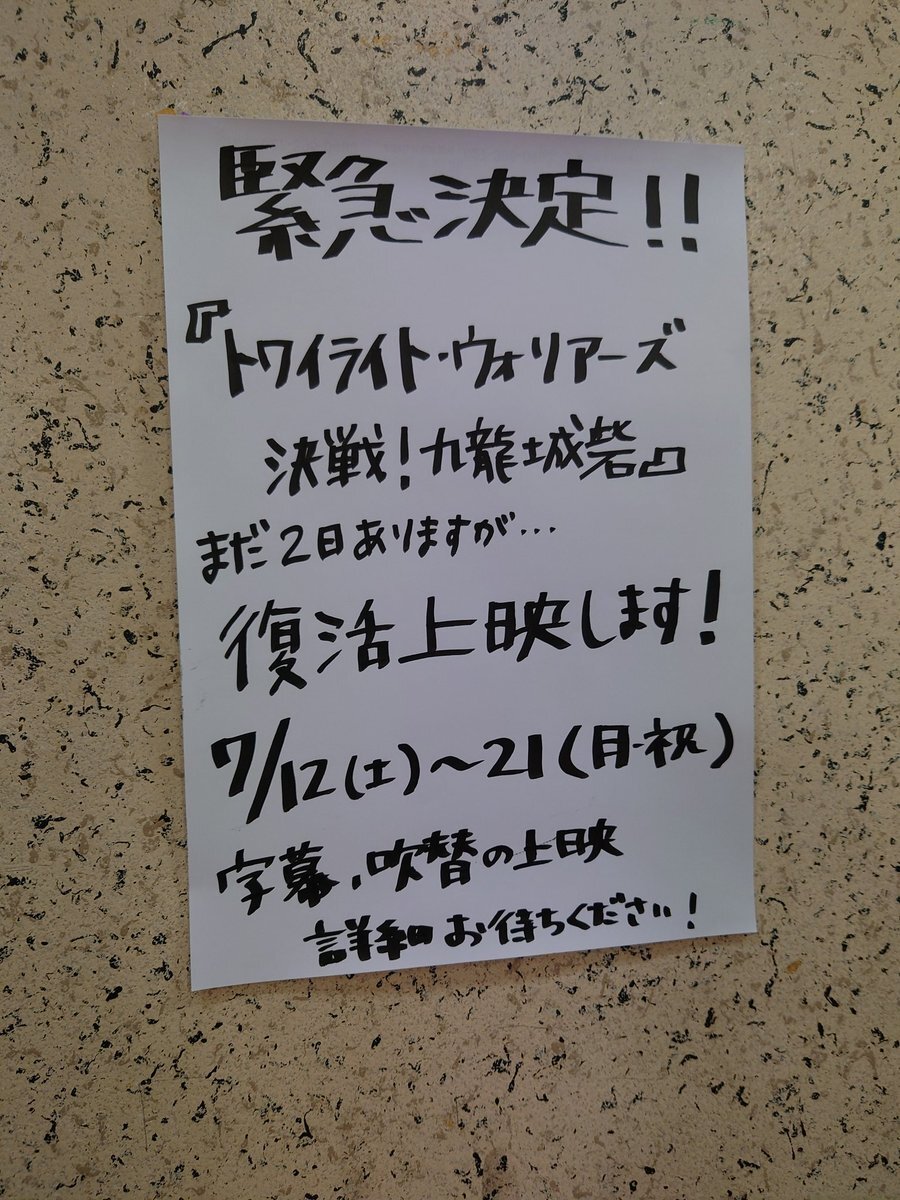 緊急決定!!
『トワイライト・ウォリアーズ
決戦!九龍城砦』
まだ2日ありますが…
復活上映します!
7/12(土)~21(月・祝)
字幕、吹替の上映
詳細お待ちください!